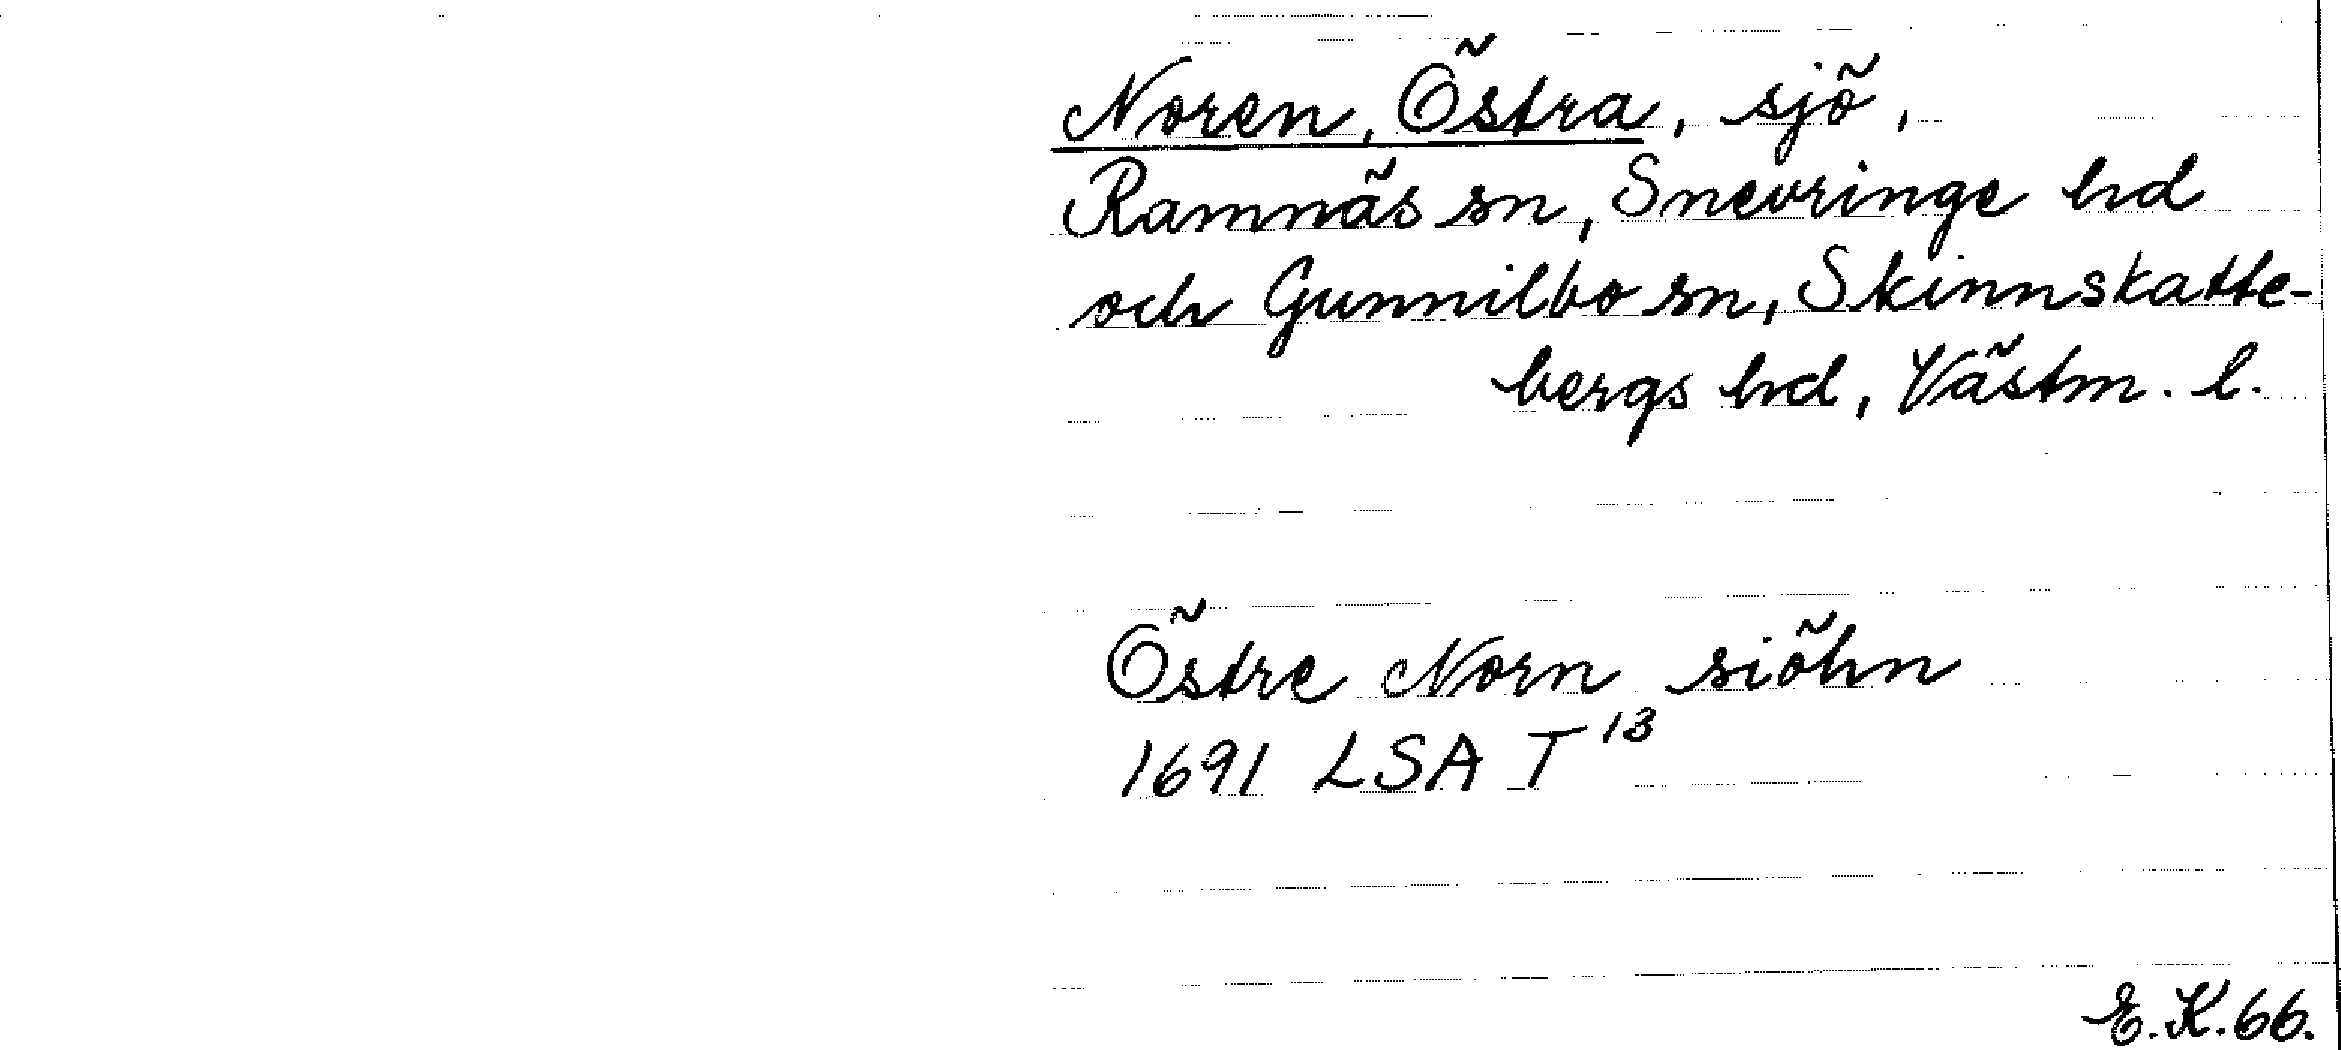 Noren, Östra, sjö,
Ramnäs sn, Snevringe hd
och Gunnilbo sn, Skinnskatte-
bergs hd, Västm. l.
Östre Norn siöhn
1691 LSA T¹³
E.K.66.